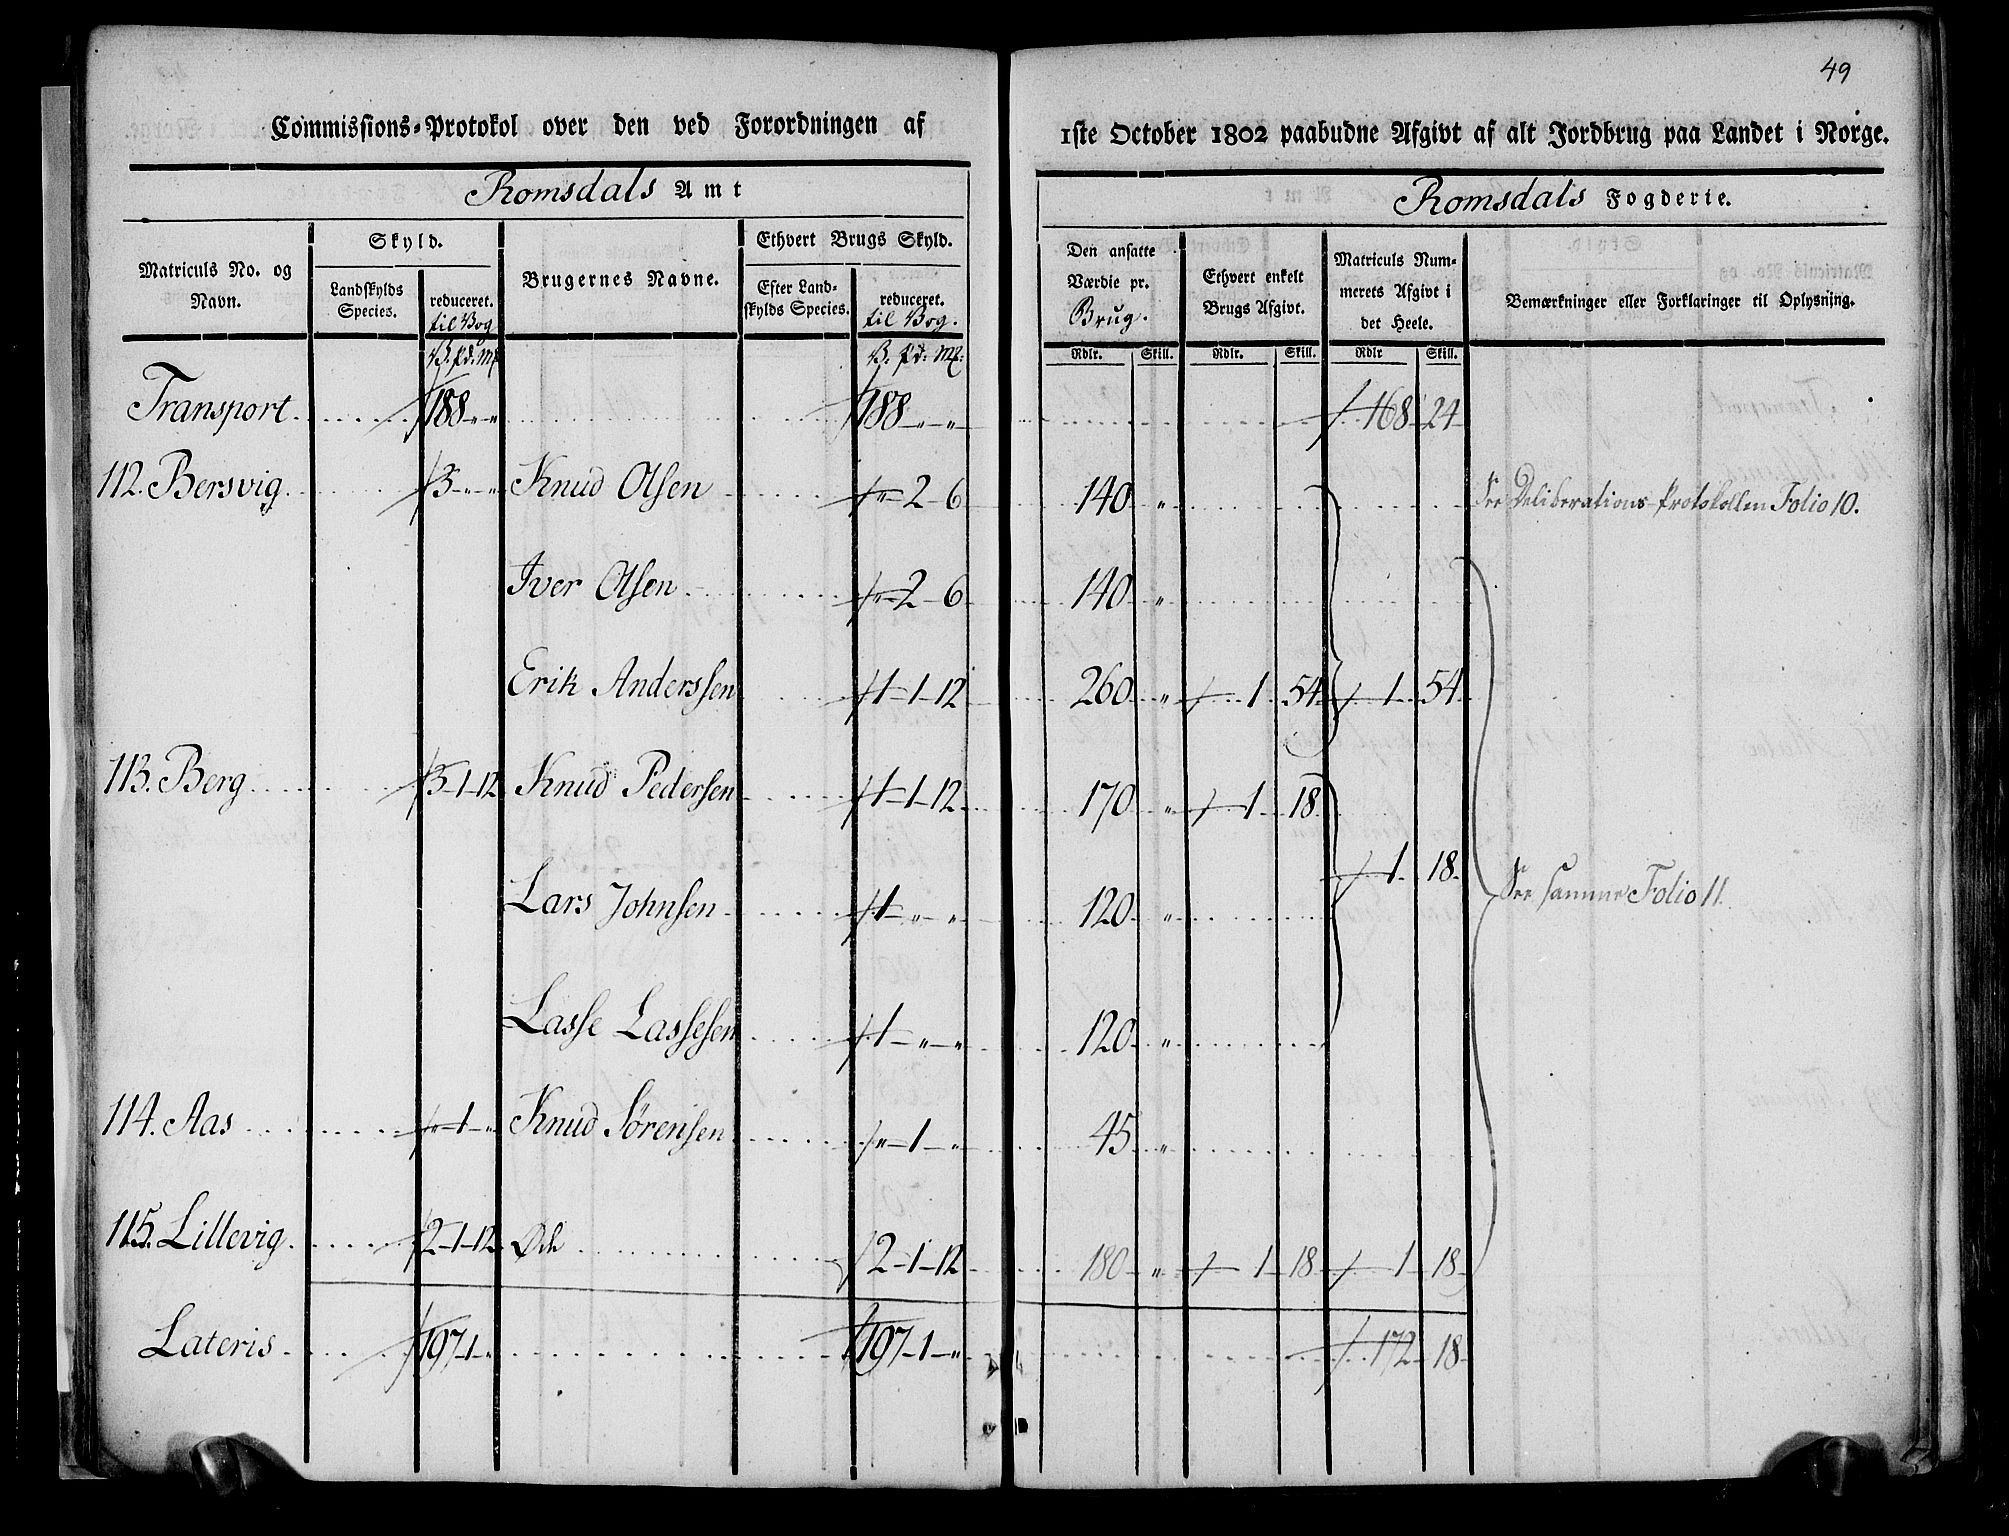 49
Commissions-Protokol over den ved Forordningen af 1ste October 1802 paabudne Afgivt af alt Jordbrug paa Landet i Norge.
Romsdals Amt
Romsdals Fogderie.
Matriculs No. og Navn.
Skyld.
Landskylds Species.
reduceret. til Vog
Brugernes Navne.
Ethvert Brugs Skyld.
Efter Landskylds Species.
reduceret. til Vog.
Den ansatte Værdie pr. Brug.
Ethvert enkelt Brugs Afgivt.
Matriculs Nummerets Afgivt i det Heele.
Bemærkninger eller Forklaringer til Oplysning.
V. pd: Mk V. pd: Mk: Rdlr. Skill. Rdlr. Skill. Rdlr Skill.
Transport 188 - " - " 188 - " - " 168 24
112. Bersvig 3 - " - " Knud Olsen " - 2 - 6 140 " See Deliberations-Protokollen Folio 10.
Iver Olsen " - 2 - 6 140 "
Erik Anderssen 1 - 1 - 12 260 " 1 54 1 54
113. Berg 3 - 1 - 12 Knud Pedersen 1 - 1 - 12 170 " 1 18
1 18 See samme Folio 11.
Lars Johnsen 1 - " - " 120 "
Lasse Lassesen 1 - " - " 120 "
114. Aas " - 1 - " Knud Sørensen " - 1 - " 45 "
115. Lillevig 2 - 1 - 12 Øde 2 - 1 - 12 180 " 1 18 1 18
Lateris 197 - 1 - " 197 - 1 - " 172 18